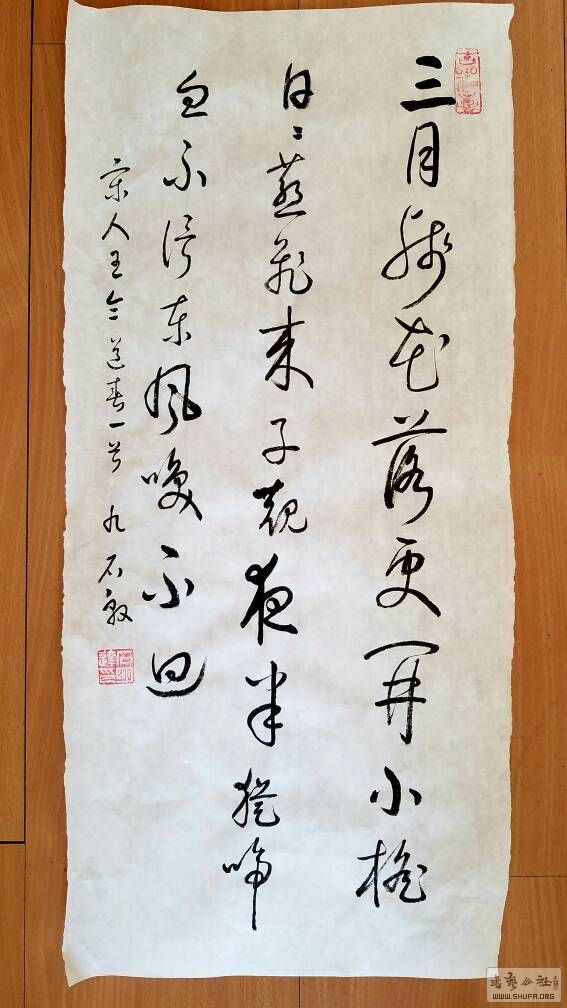 三月殘花落更開小檐
日々燕飛來子規夜半猶啼
血不信東風喚不回
宋人王令送春一首 九石
書藝公社
WWW.SHUFA.ORG